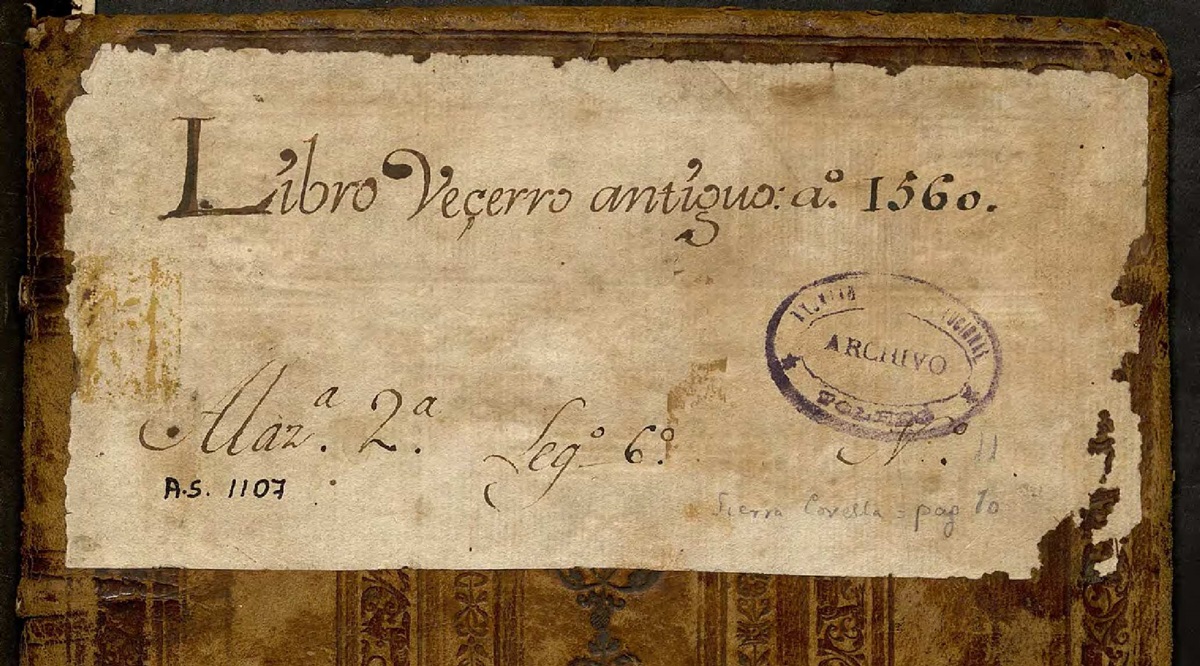 Libro Veçerro antiguo: a.º 1560.
ARCHIVO
TOLEDO
Alaz.ª 2.ª Leg.º 6.º N.º 11
A.S. 1107
Sierra Corella = pag 10